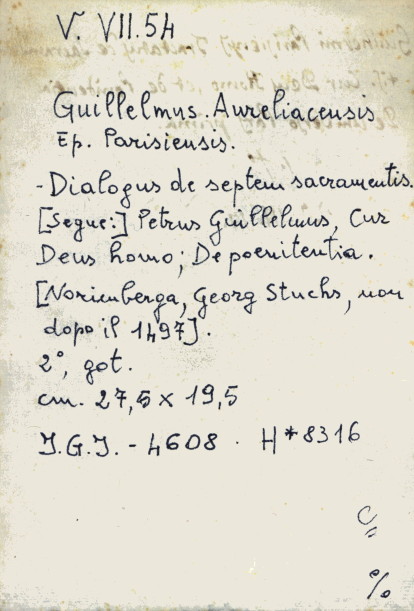 V. VII.54
Guillelmus. Aureliacensis
Ep. Parisiensis.
- Dialogus de septem sacramentis.
[Segue:] Petrus Guillelmus, Cur
Deus homo; De poenitentia.
[Norimberga, Georg Stuchs, non
dopo il 1497].
2°, got.
cm. 27,5 x 19,5
I.G.I. - 4608. H*8316